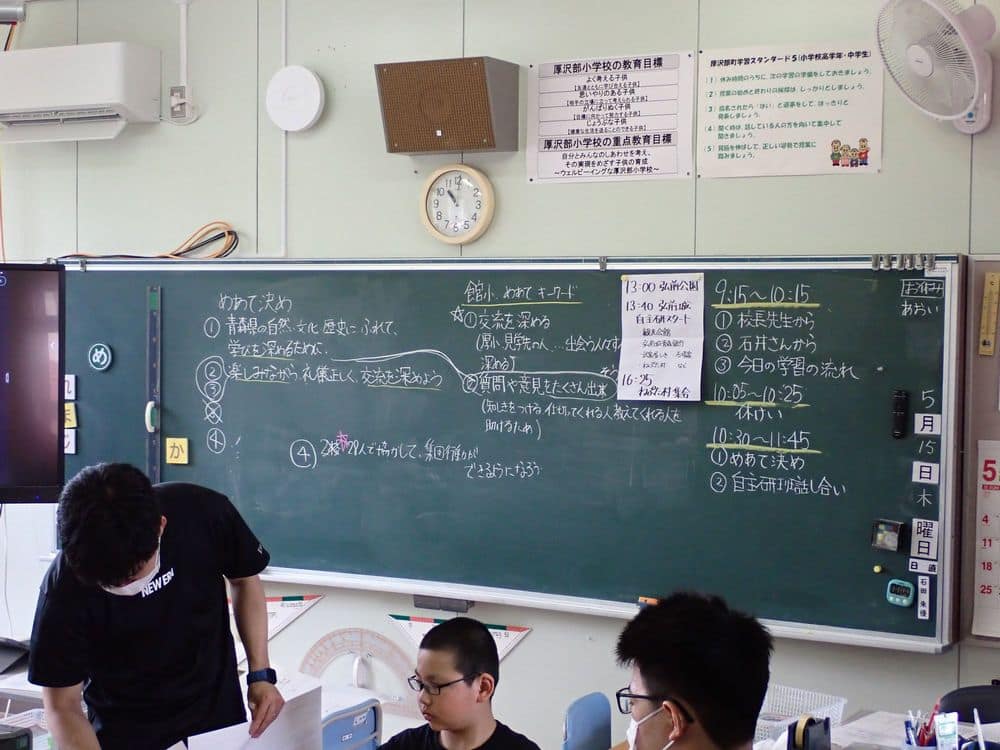 厚沢部小学校の教育目標
よく考える子供
思いやりのある子供
がんばりぬく子供
じょうぶな子供
厚沢部小学校の重点教育目標
自分とみんなのしあわせを考え、
その実現をめざす子供の育成
～ウェルビーイングな厚沢部小学校～
厚沢部町学習スタンダード5(小学校高学年・中学生)
[1] 休み時間のうちに、次の学習の準備をしておきましょう。
[2] 授業の始めと終わりの挨拶は、しっかりとしましょう。
[3] 指名されたら「はい」と返事をして、はっきりと
発表しましょう。
[4] 聞く時は、話している人の方を向いて集中して
聞きましょう。
[5] 背筋を伸ばして、正しい姿勢で授業に
臨みましょう。
めあて決め
① 青森県の自然・文化 歴史にふれて、
学びを深めるために、
② 楽しみながら 礼儀正しく、交流を深めよう
③
④
④ 29人で協力して、集団行動が
できるようになろう
館小、めあて キーワード
☆① 交流を深める
深める」
② 質問や意見をたくさん出す
助けるため)
13:00 弘前公園
13:40 弘前城
自主研スタート
16:25
ねぷた村 集合
9:15～10:15
① 校長先生から
② 石井さんから
③ 今日の学習の流れ
10:05～10:25
休けい
10:30～11:45
① めあて決め
② 自主研修話し合い
あおい
5
月
15
日
木
曜日
日直
め
ま
か
NEW ERA
5
4
11
18
25